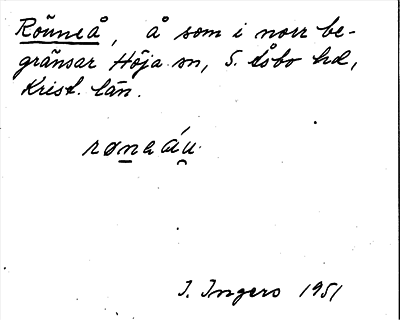 Rönneå, å som i norr be-
gränsar Höja sn, S. Åsbo hd,
Krist. län.
rønəáu̯
I. Ingers 1951